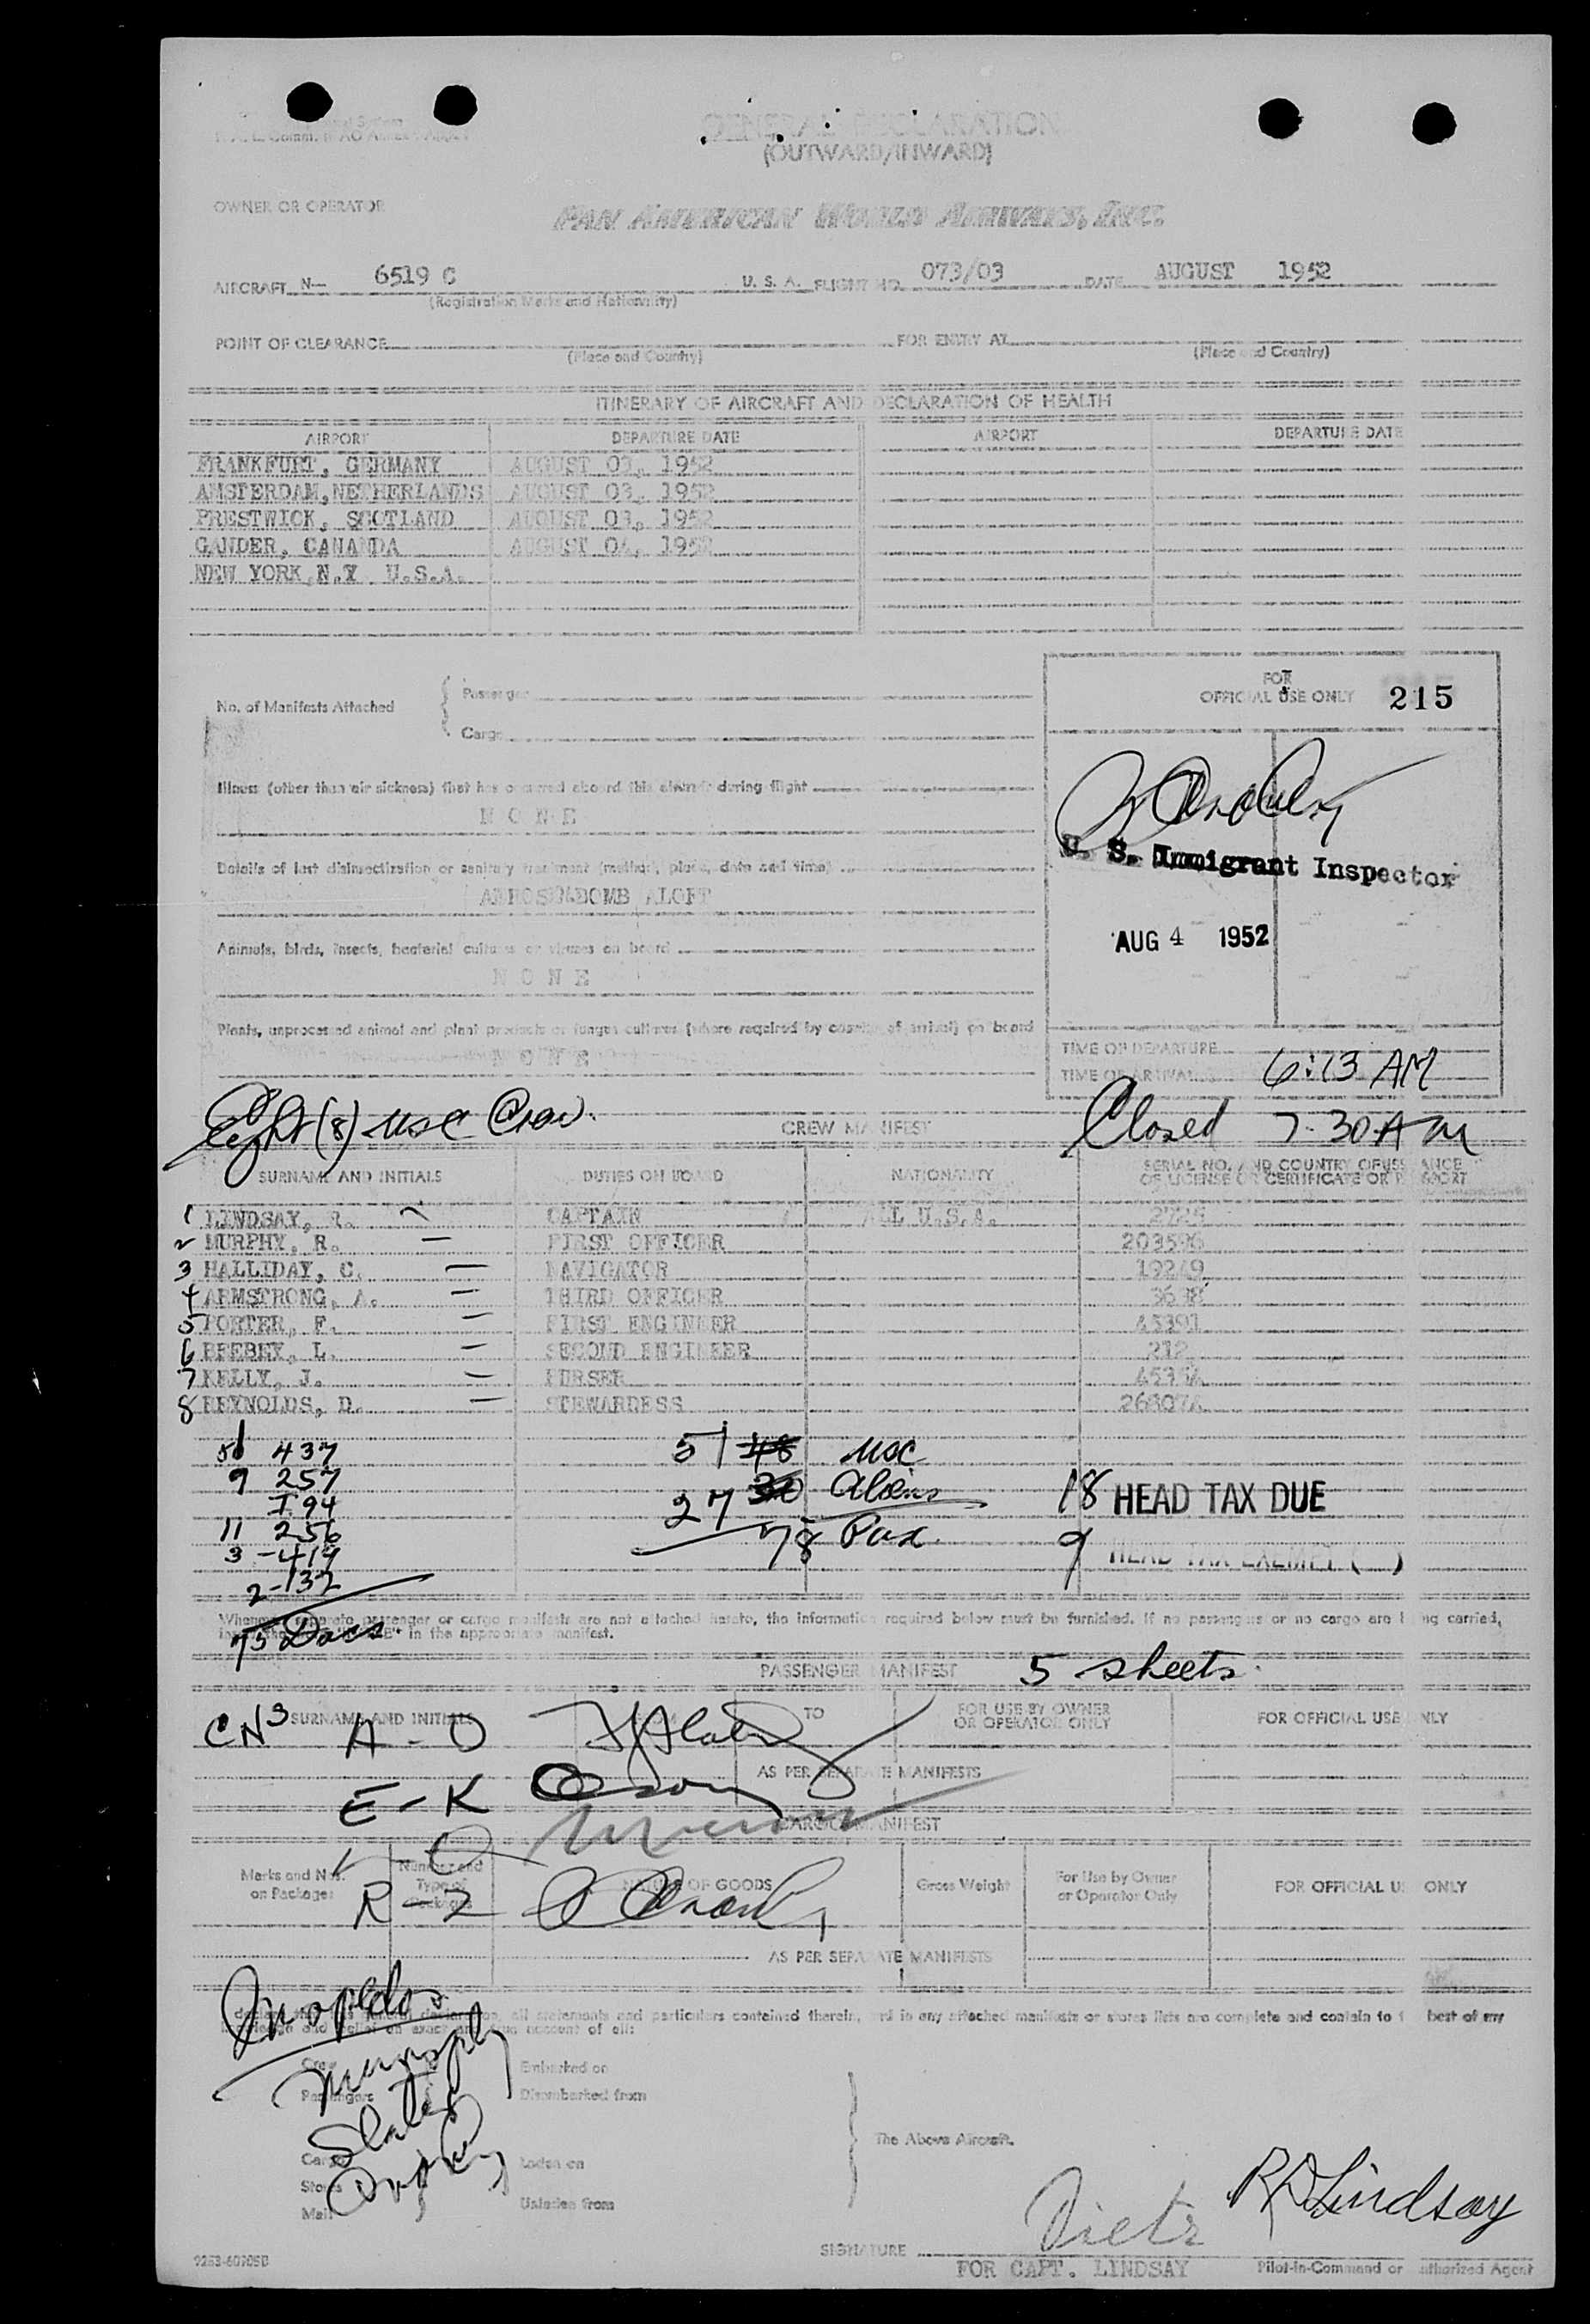 GENERAL DECLARATION
(OUTWARD/INWARD)
OWNER OR OPERATOR PAN AMERICAN WORLD AIRWAYS, INC.
AIRCRAFT N— 6519 C U. S. A. FLIGHT NO. 073/03 DATE AUGUST 1952
(Registration Marks and Nationality)
POINT OF CLEARANCE FOR ENTRY AT
(Place and Country) (Place and Country)
ITINERARY OF AIRCRAFT AND DECLARATION OF HEALTH
AIRPORT DEPARTURE DATE AIRPORT DEPARTURE DATE
FRANKFURT, GERMANY AUGUST 03, 1952
AMSTERDAM, NETHERLANDS AUGUST 03, 1952
PRESTWICK, SCOTLAND AUGUST 03, 1952
GANDER, CANANDA AUGUST 04, 1952
NEW YORK, N.Y U.S.A.
FOR
OFFICIAL USE ONLY 215
No. of Manifests Attached
Passenger
Cargo
Illness (other than air sickness) that has occurred aboard this aircraft during flight
N O N E
U. S. Immigrant Inspector
Details of last disinsectization or sanitary treatment (method, place, date and time)
AEROSOL BOMB ALOFT
AUG 4 1952
Animals, birds, insects, bacterial cultures or viruses on board
N O N E
Plants, unprocessed animal and plant products or fungus cultures (where required by country of arrival) on board
N O N E
TIME OF DEPARTURE
TIME OF ARRIVAL 6:13 AM
Eight (8) USC Crew. CREW MANIFEST Closed 7-30 AM
SURNAME AND INITIALS DUTIES ON BOARD NATIONALITY SERIAL NO. AND COUNTRY OF ISSUANCE
OF LICENSE OR CERTIFICATE OR PASSPORT
1 LINDSAY, R. CAPTAIN ALL U.S.A.
2 MURPHY, R. — FIRST OFFICER 203596
3 HALLIDAY, C. — NAVIGATOR 19249
4 ARMSTRONG, A. — THIRD OFFICER
5 PORTER, F. — FIRST ENGINEER 45391
6 BREBEY, L. — SECOND ENGINEER 212
7 KELLY, J. — PURSER
8 REYNOLDS, D. — STEWARDESS
437 51 48 USC
9 257 27 30 Aliens 18 HEAD TAX DUE
I 94 78 Pax.
11 256 9 HEAD TAX EXEMPT ( )
3 - 419
2 - 132
75 Docs
Whenever separate passenger or cargo manifests are not attached hereto, the information required below must be furnished. If no passengers or no cargo are being carried,
in the appropriate manifest.
PASSENGER MANIFEST 5 sheets
SURNAME AND INITIALS TO FOR USE BY OWNER
OR OPERATOR ONLY FOR OFFICIAL USE ONLY
A - D
AS PER SEPARATE MANIFESTS
E - K
CARGO MANIFEST
Marks and Nos.
on Packages Number and
Type of
Packages NATURE OF GOODS Gross Weight For Use by Owner
or Operator Only FOR OFFICIAL USE ONLY
R - Z
AS PER SEPARATE MANIFESTS
all statements and particulars contained therein, and in any attached manifests or stores lists are complete and contain to the best of my
knowledge and belief an exact and true account of all:
Crew Embarked on
Passengers Disembarked from
The Above Aircraft.
Cargo Laden on
Stores
Mail Unladen from
Dietz R D Lindsay
SIGNATURE
FOR CAPT. LINDSAY Pilot-in-Command or Authorized Agent